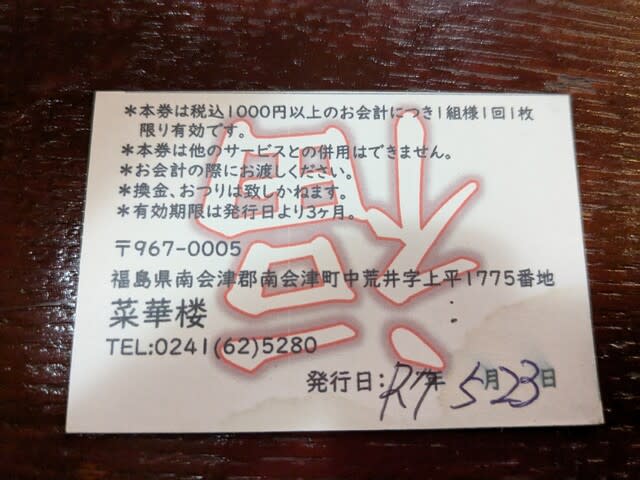 *本券は税込1000円以上のお会計につき1組様1回1枚
限り有効です。
*本券は他のサービスとの併用はできません。
*お会計の際にお渡しください。
*換金、おつりは致しかねます。
*有効期限は発行日より3ヶ月。
〒967-0005
福島県南会津郡南会津町中荒井字上平1775番地
菜華楼
TEL:0241(62)5280
発行日:R7年 5月23日
福